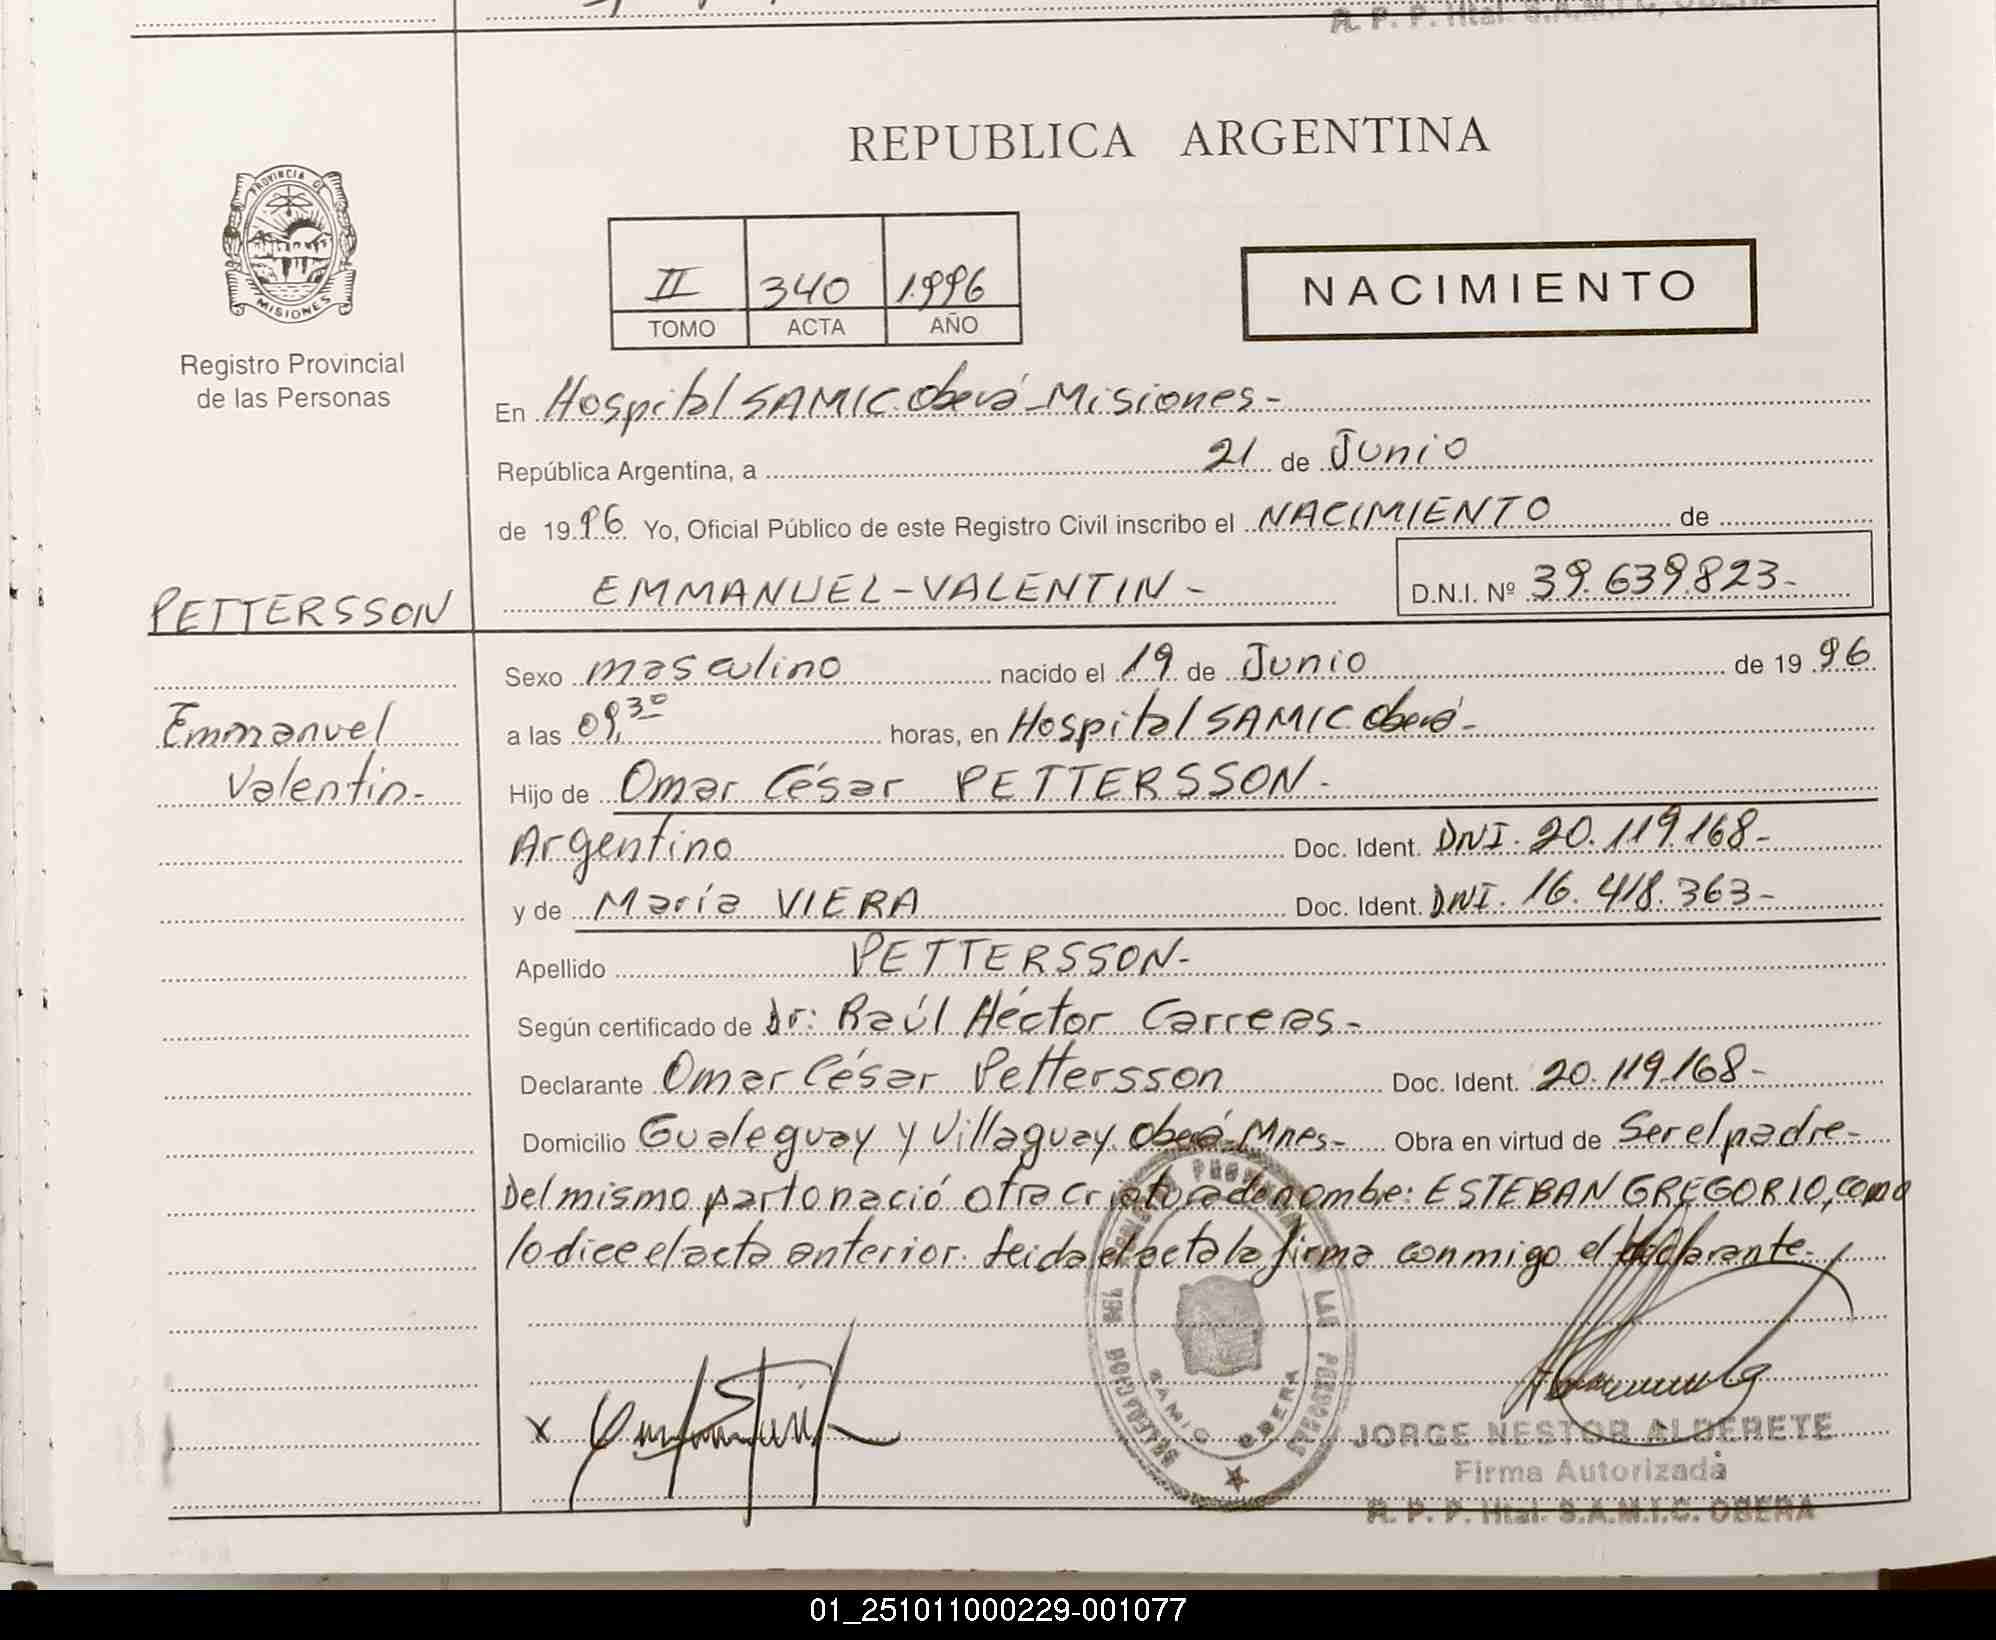 R. P. P. Htal. S.A.M.I.C. OBERA
REPUBLICA ARGENTINA
PROVINCIA DE
MISIONES
Registro Provincial
de las Personas
II 340 1.996
TOMO ACTA AÑO
NACIMIENTO
En Hospital SAMIC. Oberá-Misiones-
República Argentina, a 21 de Junio
de 1996 Yo, Oficial Público de este Registro Civil inscribo el NACIMIENTO de
PETTERSSON EMMANUEL-VALENTIN- D.N.I. Nº 39.639.823-
Sexo masculino nacido el 19 de Junio de 1996
Emmanuel a las 09,30 horas, en Hospital SAMIC Oberá-
Valentin- Hijo de Omar César PETTERSSON-
Argentino Doc. Ident. DNI. 20.119.168-
y de María VIERA Doc. Ident. DNI. 16.418.363-
Apellido PETTERSSON-
Según certificado de Dr: Raúl Héctor Carreras-
Declarante Omar César Pettersson Doc. Ident. 20.119.168-
Domicilio Gualeguay y Villaguay. Oberá-Mnes- Obra en virtud de Ser el padre-
Del mismo parto nació otra criatura de nombre: ESTEBAN GREGORIO, como
lo dice el acta anterior. Leida el acta la firma conmigo el declarante-
DELEGACION DEL REGISTRO PROVINCIAL DE LAS PERSONAS
SAMIC OBERA
X
JORGE NESTOR ALDERETE
Firma Autorizada
R. P. P. Htal. S.A.M.I.C. OBERA
01_251011000229-001077